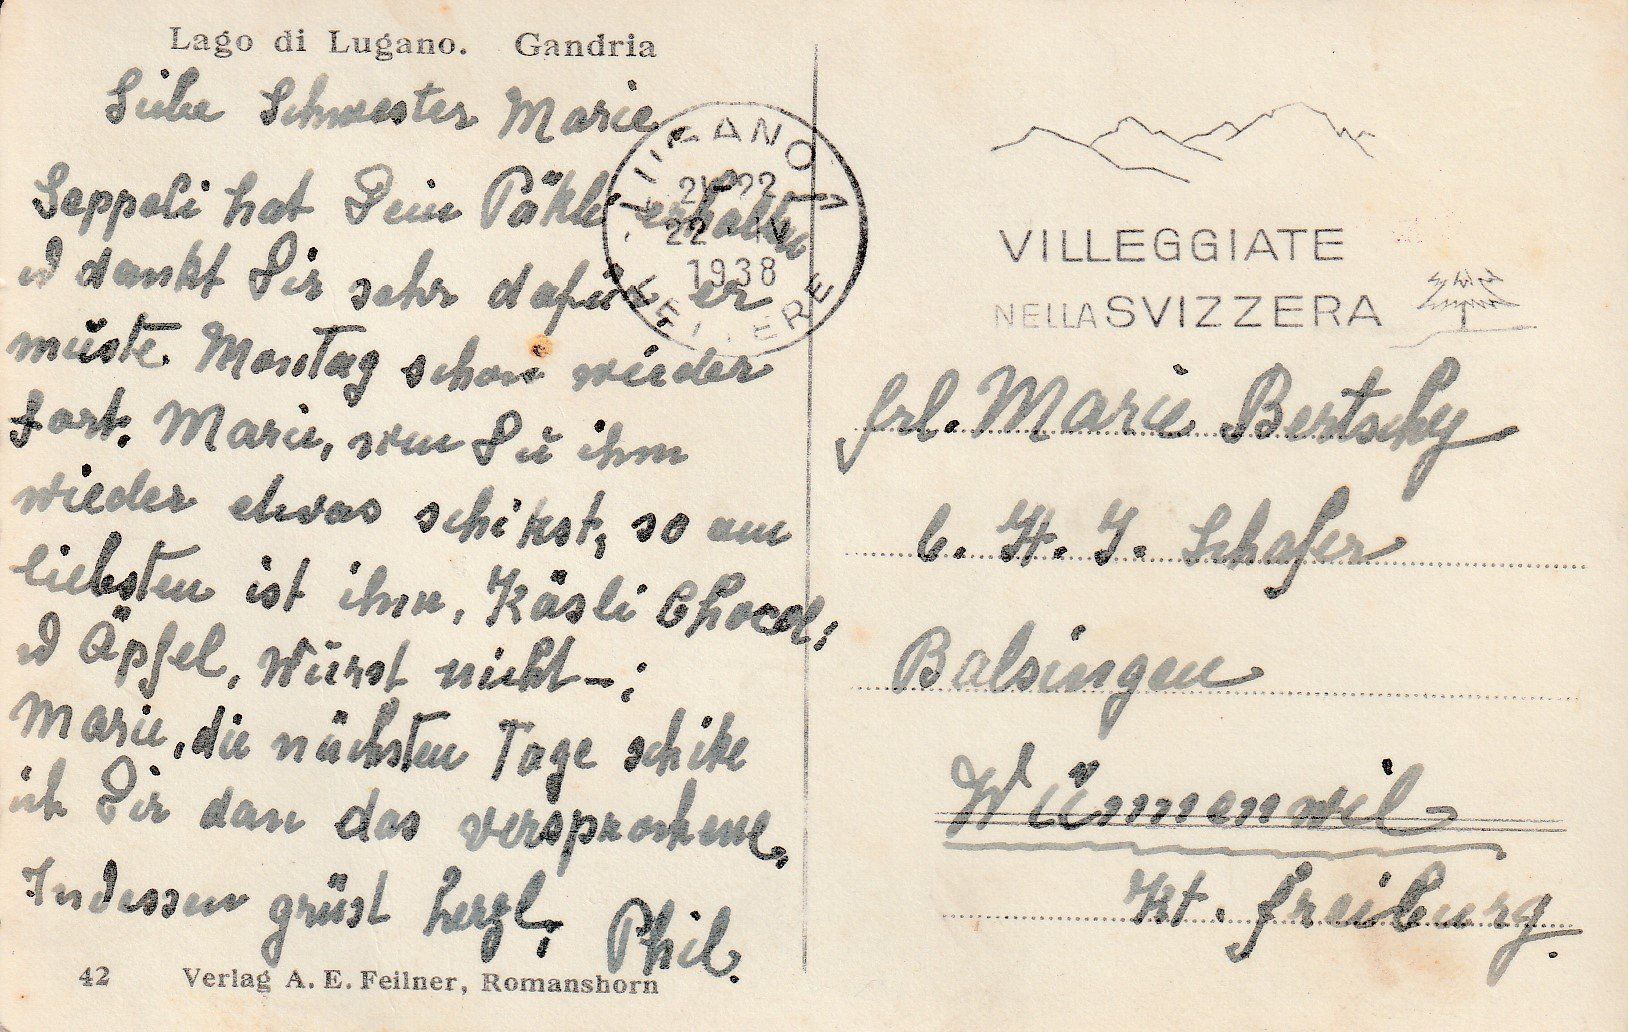 Lago di Lugano. Gandria
Liebe Schwester Marie
Seppeli hat Dein Päkli erhalten
u dankt Dir sehr dafür, er
müste Montag schon wieder
fort. Marie, wen Du ihm
wieder etwas schikst, so am
liebsten ist ihm, Käsli Chocol;
u Äpfel, Wurst nicht -;
Marie, die nächsten Tage schike
ich Dir dan das versprochene,
Indessen grüst herzl, Phil.
42 Verlag A. E. Feilner, Romanshorn
LUGANO 1
22
1938
LETTERE
VILLEGGIATE
NELLA SVIZZERA
Frl. Marie Bertschy
b. H. J. Schafer
Balsingen
Wünnenwil
Kt. Freiburg.